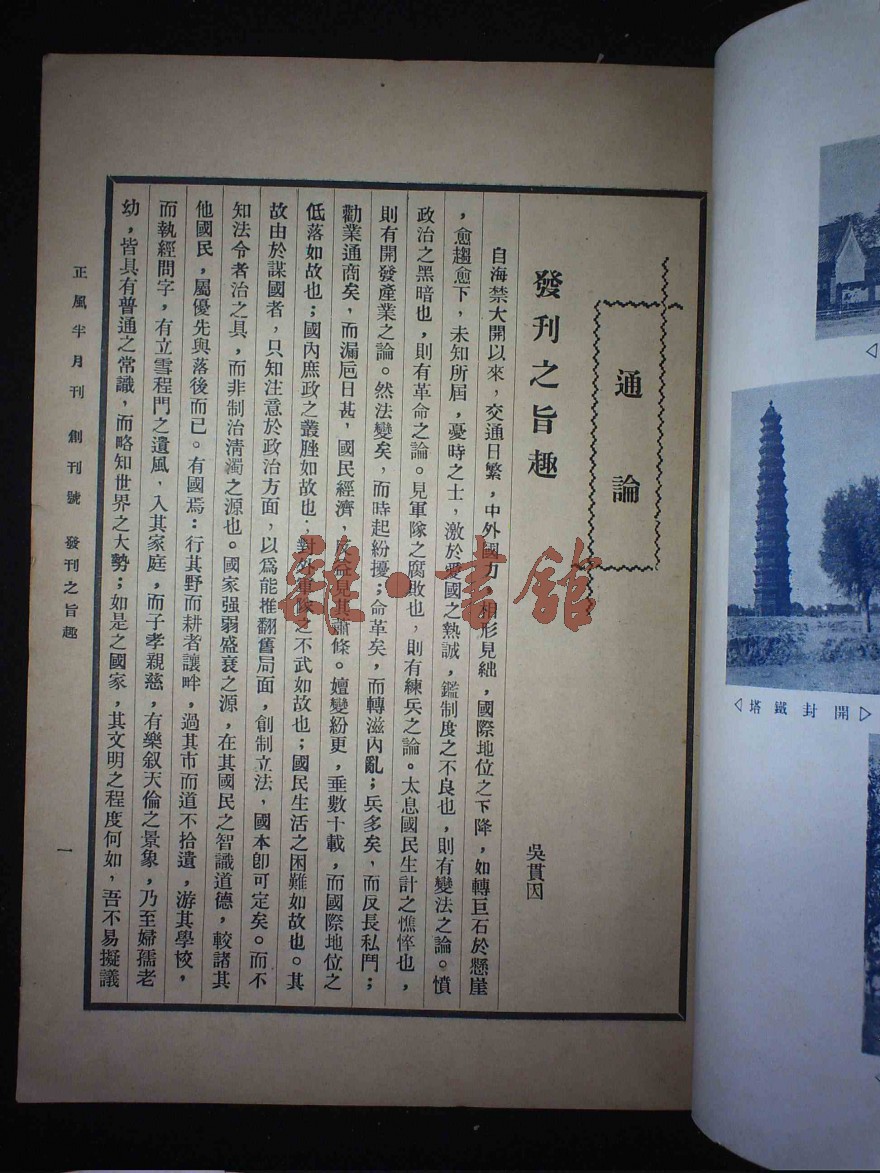 通論
發刊之旨趣
吳貫因
自海禁大開以來，交通日繁，中外國力，相形見絀，國際地位之下降，如轉巨石於懸崖
，愈趨愈下，未知所屆，憂時之士，激於愛國之熱誠，鑑制度之不良也，則有變法之論。憤
政治之黑暗也，則有革命之論。見軍隊之腐敗也，則有練兵之論。太息國民生計之憔悴也，
則有開發產業之論。然法變矣，而時起紛擾；命革矣，而轉滋內亂；兵多矣，而反長私鬥；
勸業通商矣，而漏巵日甚，國民經濟，反益見其蕭條。嬗變紛更，垂數十載，而國際地位之
低落如故也；國內庶政之叢脞如故也；對外軍隊之不武如故也；國民生活之困難如故也。其
故由於謀國者，只知注意於政治方面，以爲能推翻舊局面，創制立法，國本卽可定矣。而不
知法令者治之具，而非制治清濁之源也。國家强弱盛衰之源，在其國民之智識道德，較諸其
他國民，屬優先與落後而已。有國焉：行其野而耕者讓畔，過其市而道不拾遺，游其學校，
而執經問字，有立雪程門之遺風，入其家庭，而子孝親慈，有樂叙天倫之景象，乃至婦孺老
幼，皆具有普通之常識，而略知世界之大勢；如是之國家，其文明之程度何如，吾不易擬議
正風半月刊 創刊號 發刊之旨趣
一
◁塔鐵封開▷
雜·書館